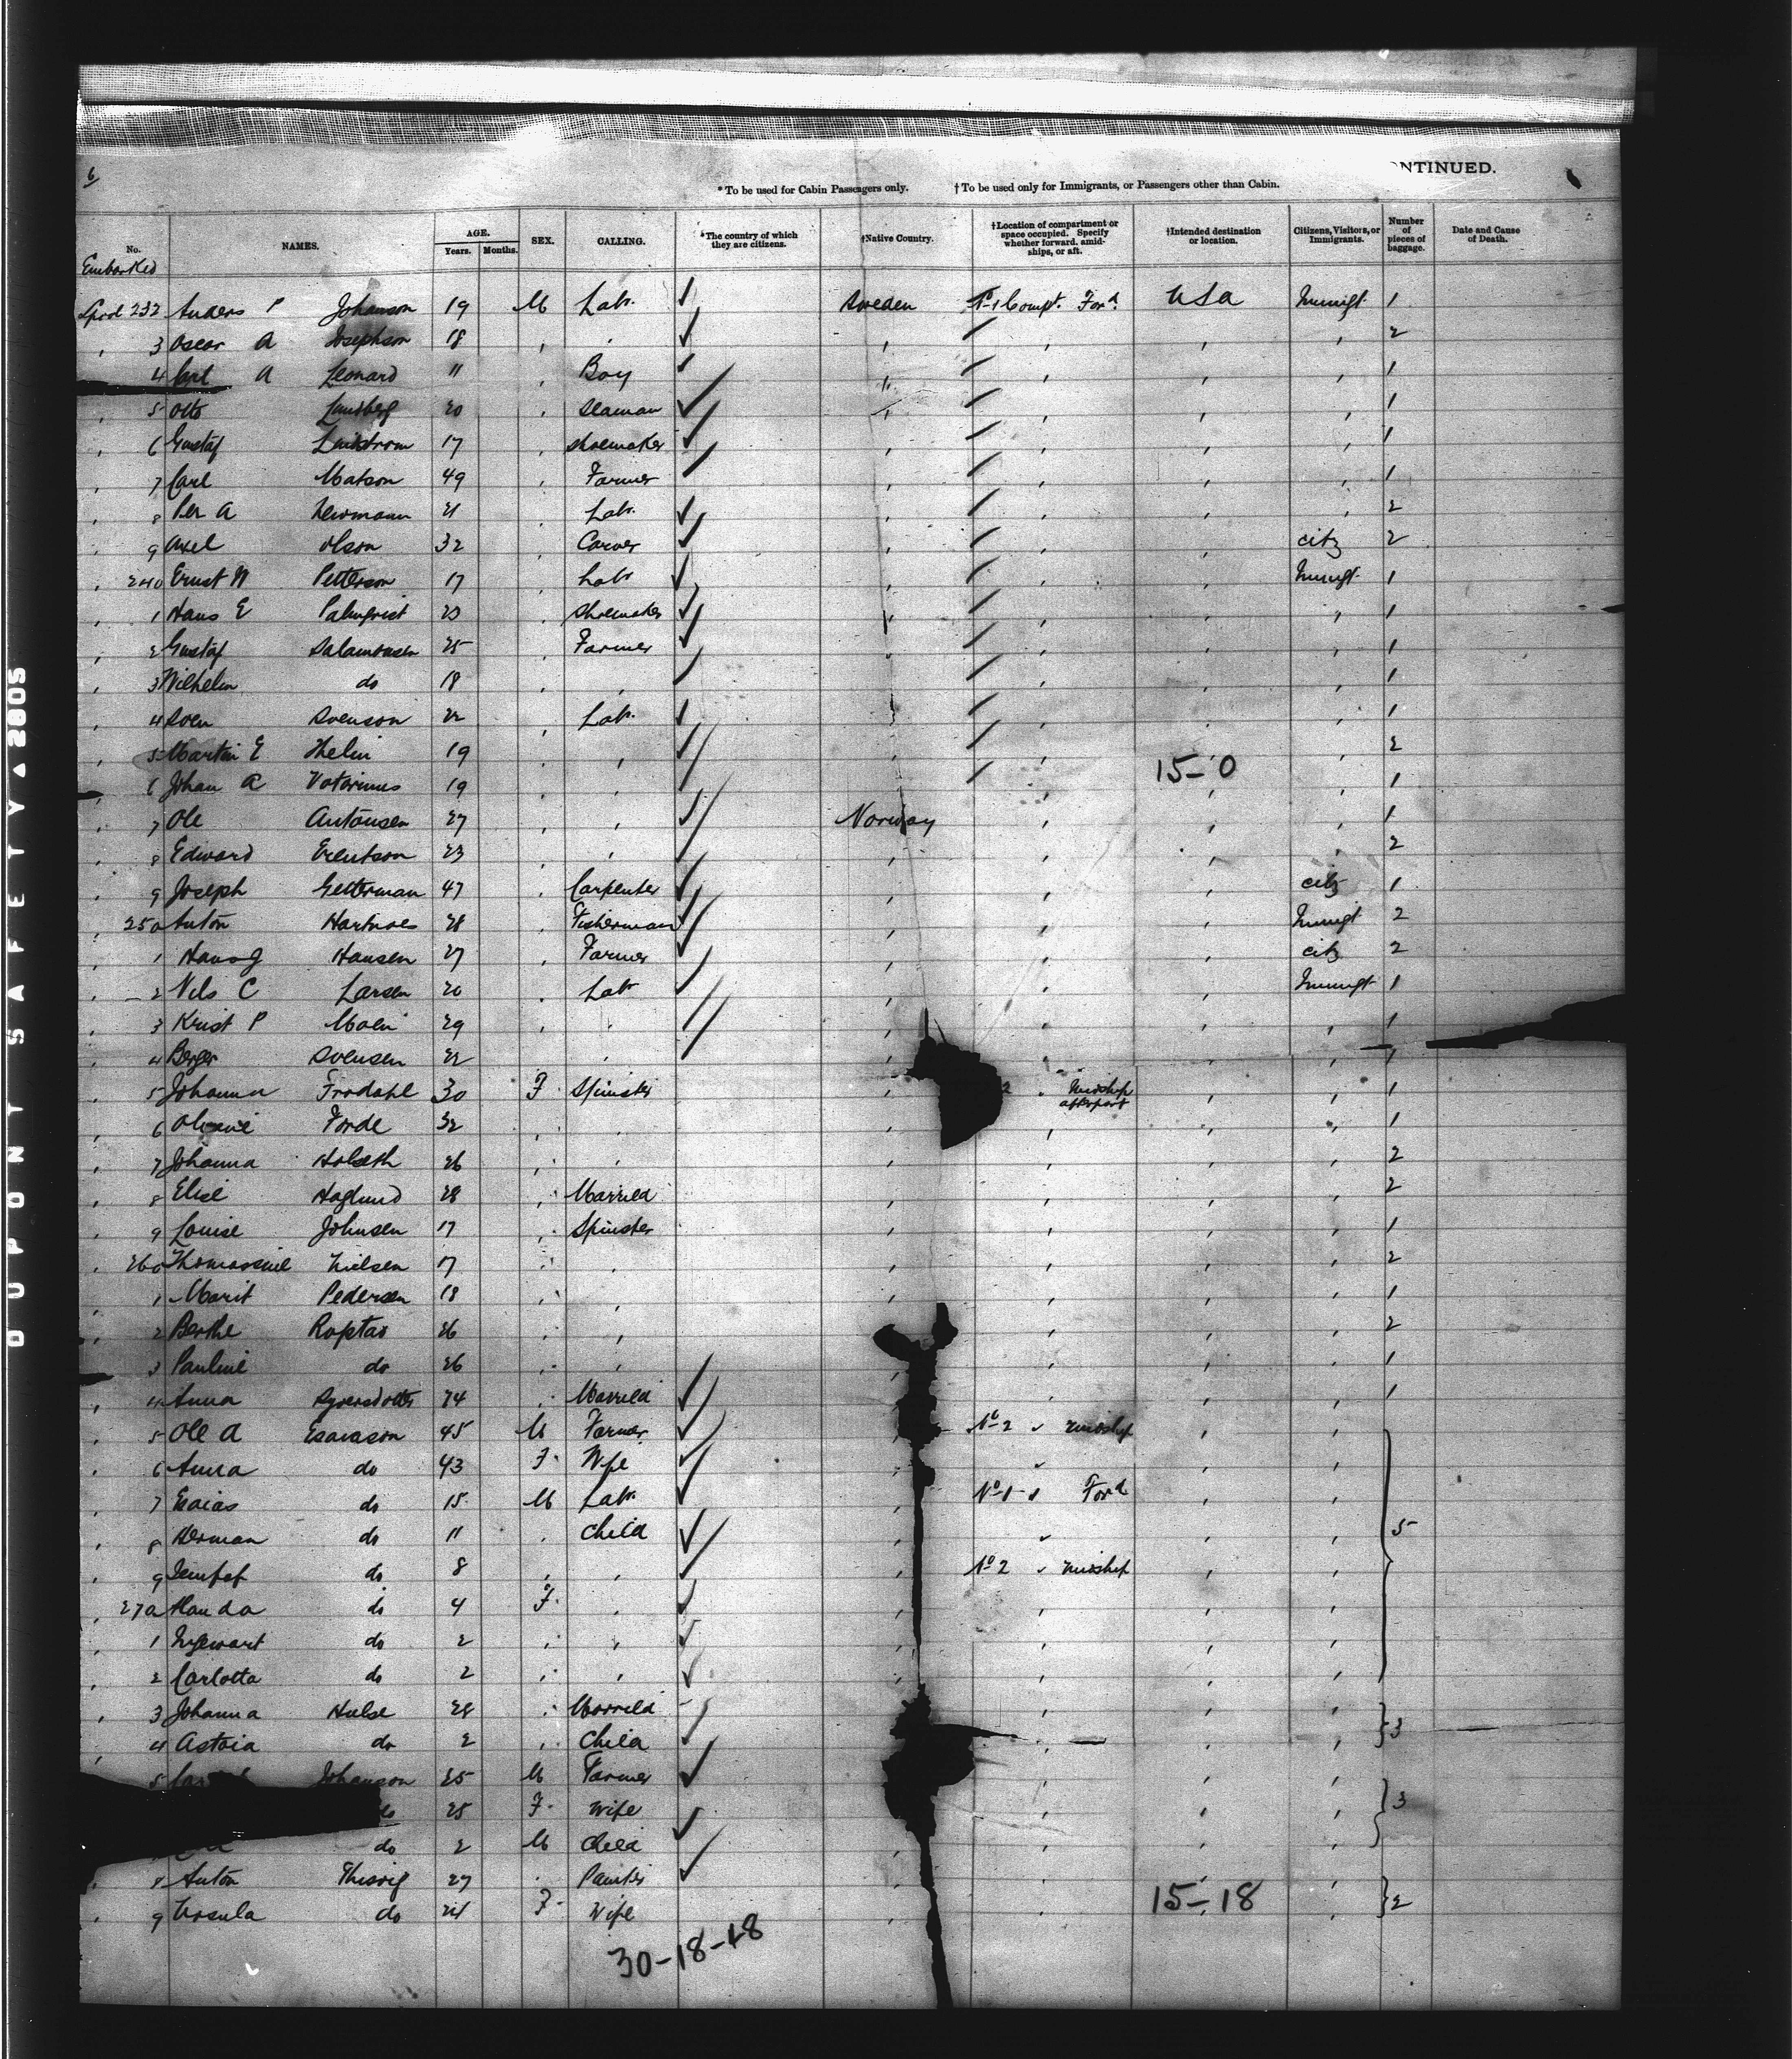 6
ONTINUED.
* To be used for Cabin Passengers only. † To be used only for Immigrants, or Passengers other than Cabin.
No. NAMES. AGE. Years. Months. SEX. CALLING. *The country of which they are citizens. †Native Country. †Location of compartment or space occupied. Specify whether forward, amidships, or aft. †Intended destination or location. Citizens, Visitors, or Immigrants. Number of pieces of baggage. Date and Cause of Death.
Embarked
232 Anders P Johanson 19 M Lab. Sweden No 1 Compt. Ford USA Immigt 1
3 Oscar A Josephson 18 2
4 Carl A Leonard 11 Boy 1
5 Otto Lundberg 20 Seaman 1
6 Gustaf Lindstrom 17 Shoemaker 1
7 Carl Matson 49 Farmer 1
8 Per A Newmann 21 Lab. 2
9 Axel Olson 32 Carver citz 2
240 Ernst W Petterson 17 Lab Immigt 1
1 Hans E Palmqvist 23 Shoemaker 1
2 Gustaf Salamonsen 25 Farmer 1
3 Wilhelm do 18 1
4 Sven Svenson 22 Lab. 1
5 Martin E Thelin 19 2
15-0
6 Johan A 19 1
7 Ole Antonsen 27 Norway 1
8 Edward Erentson 23 2
9 Joseph Getterman 47 Carpenter citz 1
250 Anton 28 Fisherman Immigt 2
1 Hans J Hansen 27 Farmer citz 2
2 Nils C Larsen 20 Lab Immigt 1
3 Krist P Moen 29 1
4 Berger Svensen 22 1
5 Johanna Frodahl 30 F Spinster 2 Midship 1
6 Forde 32 1
7 Johanna Holseth 26 2
8 Elise Haglund 28 Married 2
9 Louise Johnsen 17 Spinster 1
260 Thomassine Nielsen 17 2
1 Marit Pedersen 18 1
2 Berthe Roptad 26 2
3 Pauline do 26 1
4 Anna 74 Married 1
5 Ole A Esaiason 45 M Farmer No 2 Midship
6 Anna do 43 F Wife
7 Esaias do 15 M Lab. No 1 Ford
8 Herman do 11 Child 5
9 do 8 No 2 Midship
270 Handa do 4 F
1 Ingewart do 2
2 Carlotta do 2
3 Johanna Hulse 28 Married 3
4 Astria do 2 Child
5 Johanson 25 M Farmer
do 25 F Wife 3
do 2 M Child
8 Anton 27 Painter
9 Ursula do 24 F Wife 15-18 2
30-18-48
DUPONT SAFETY ▲ 2805